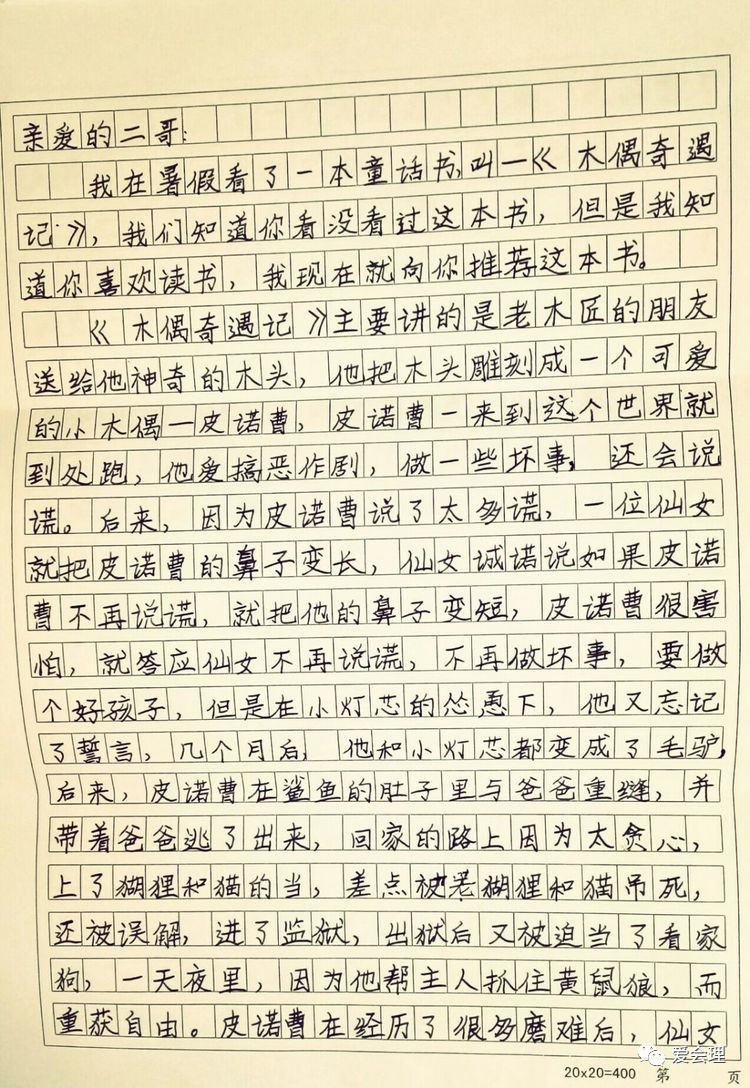 亲爱的二哥:
我在暑假看了一本童话书,叫—《木偶奇遇
记》，我们知道你看没看过这本书，但是我知
道你喜欢读书，我现在就向你推荐这本书。
《木偶奇遇记》主要讲的是老木匠的朋友
送给他神奇的木头，他把木头雕刻成一个可爱
的小木偶—皮诺曹，皮诺曹一来到这个世界就
到处跑，他爱搞恶作剧，做一些坏事，还会说
谎。后来，因为皮诺曹说了太多谎，一位仙女
就把皮诺曹的鼻子变长，仙女诚诺说如果皮诺
曹不再说谎，就把他的鼻子变短，皮诺曹很害
怕，就答应仙女不再说谎，不再做坏事，要做
个好孩子，但是在小灯芯的怂恿下，他又忘记
了誓言，几个月后，他和小灯芯都变成了毛驴，
后来，皮诺曹在鲨鱼的肚子里与爸爸重缝，并
带着爸爸逃了出来，回家的路上因为太贪心，
上了糊狸和猫的当，差点被老糊狸和猫吊死，
还被误解，进了监狱，出狱后又被迫当了看家
狗，一天夜里，因为他帮主人抓住黄鼠狼，而
重获自由。皮诺曹在经历了很多磨难后，仙女
20×20=400 第 页
爱会理